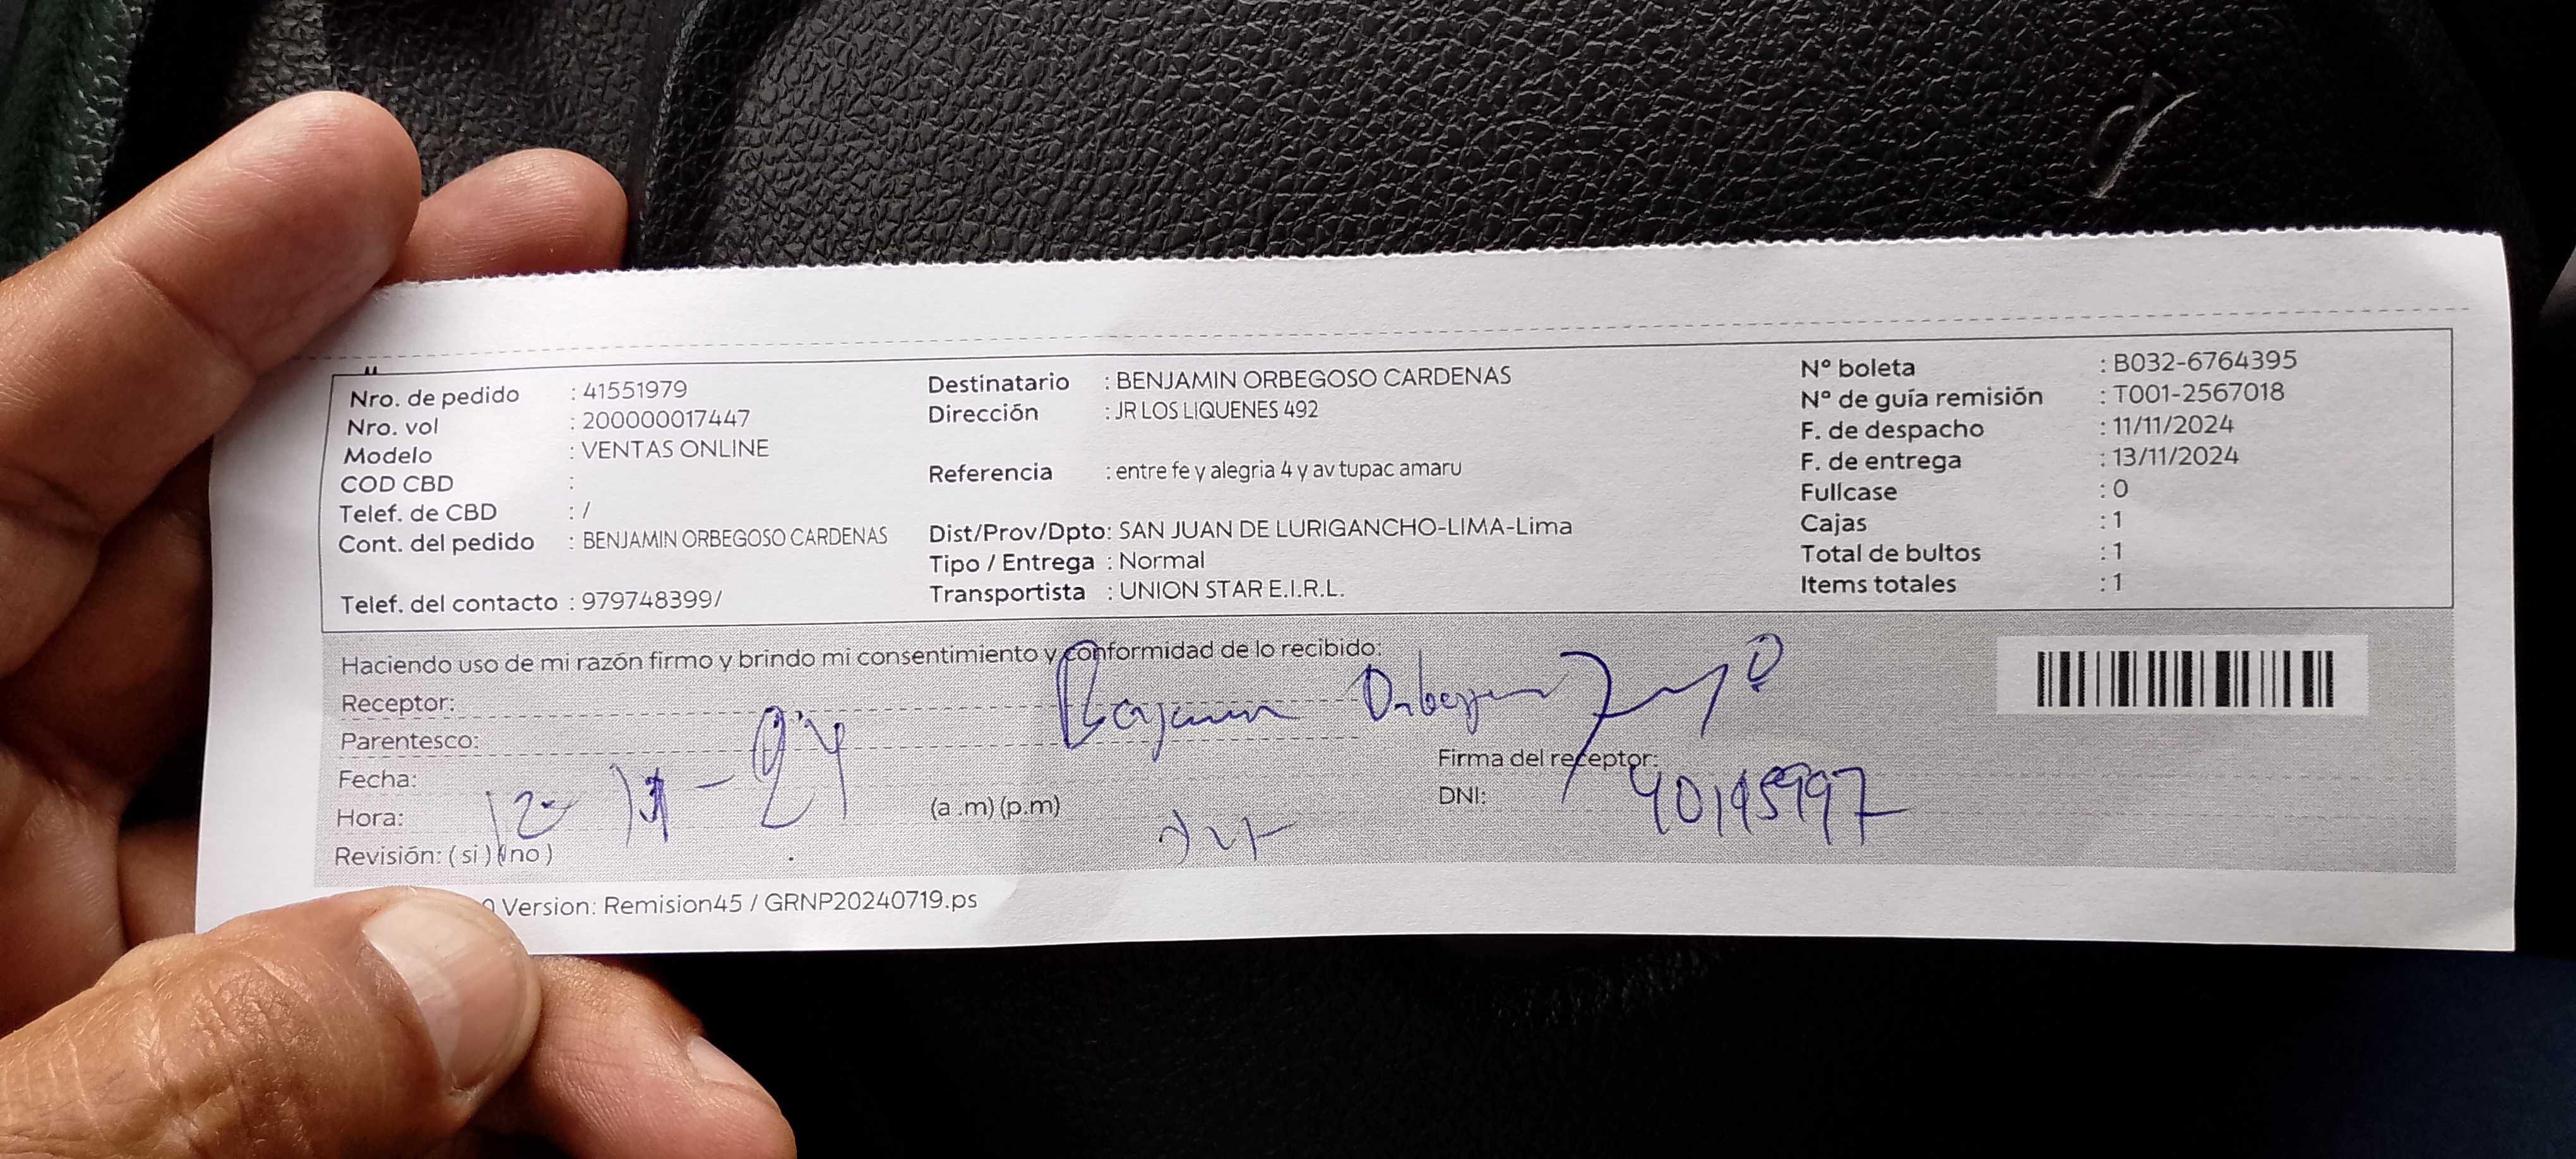 Nro. de pedido : 41551979
Nro. vol : 200000017447
Modelo : VENTAS ONLINE
COD CBD :
Telef. de CBD : /
Cont. del pedido : BENJAMIN ORBEGOSO CARDENAS
Telef. del contacto : 979748399/
Destinatario : BENJAMIN ORBEGOSO CARDENAS
Dirección : JR LOS LIQUENES 492
Referencia : entre fe y alegria 4 y av tupac amaru
Dist/Prov/Dpto: SAN JUAN DE LURIGANCHO-LIMA-Lima
Tipo / Entrega : Normal
Transportista : UNION STAR E.I.R.L.
N° boleta : B032-6764395
N° de guía remisión : T001-2567018
F. de despacho : 11/11/2024
F. de entrega : 13/11/2024
Fullcase : 0
Cajas : 1
Total de bultos : 1
Items totales : 1
Haciendo uso de mi razón firmo y brindo mi consentimiento y conformidad de lo recibido:
Receptor:
Parentesco:
Fecha:
Hora: (a .m) (p.m)
Revisión: ( si ) ( no )
Firma del receptor:
DNI: 40195997
Version: Remision45 / GRNP20240719.ps